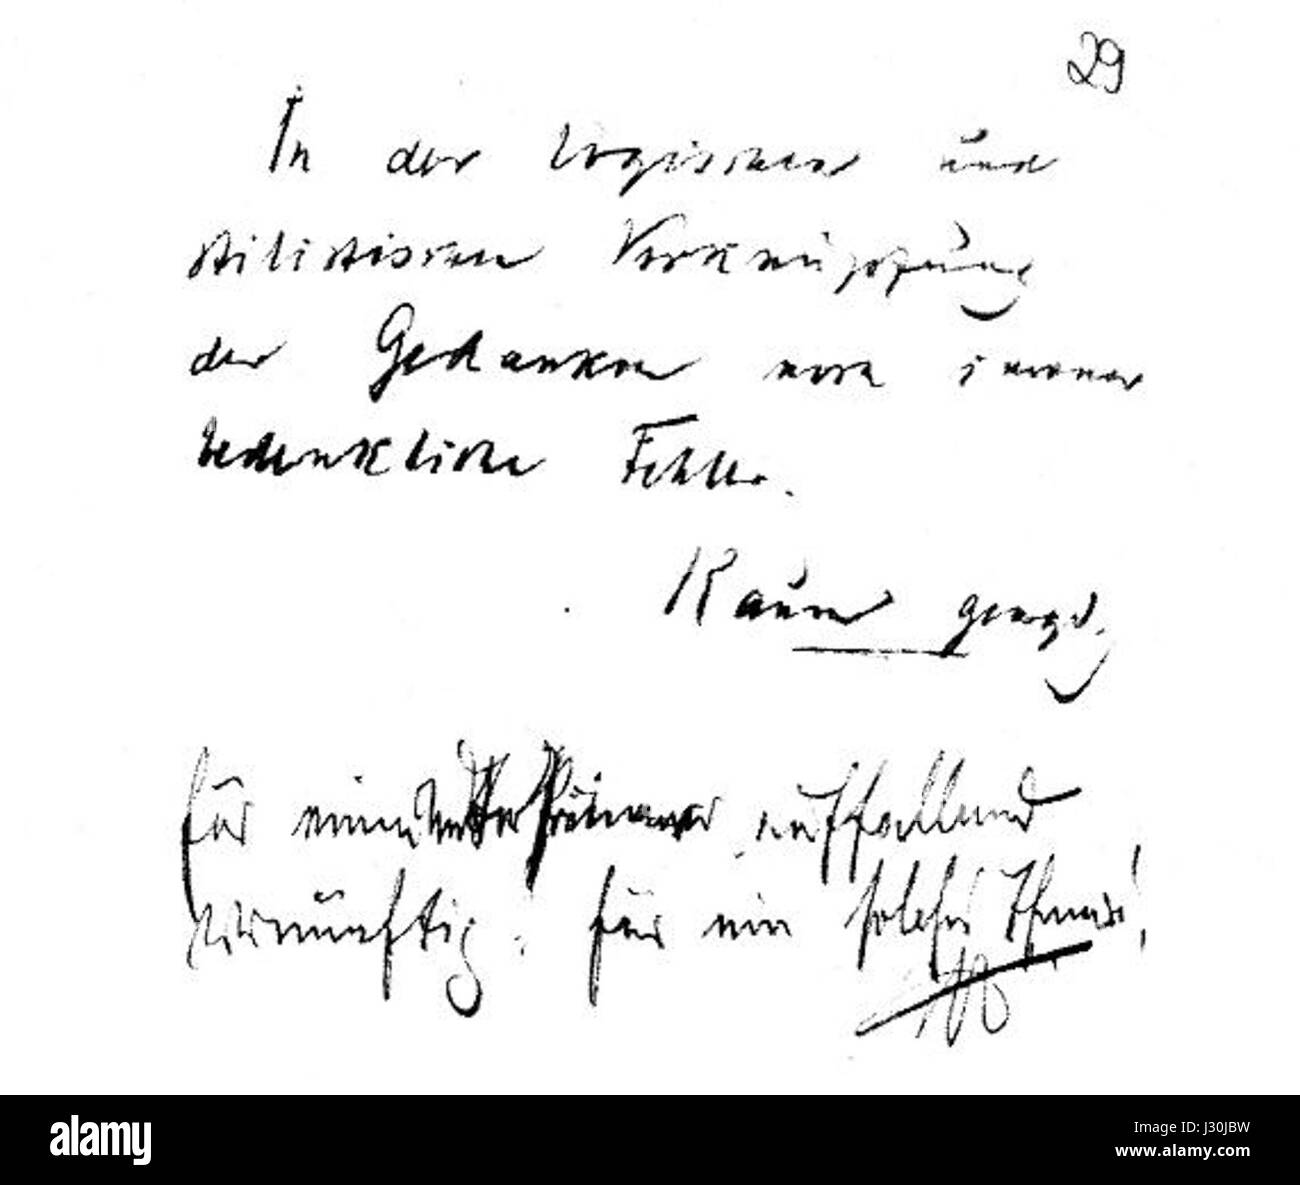 29
In der logischen und
stilistischen Verknüpfung
der Gedanken noch immer
bedenkliche Fehler.
Kaum genügd.
Für einen Unter Primaner auffallend
vernünftig! Für ein solches Thema!
alamy
a
alamy
Image ID: J30JBW
www.alamy.com